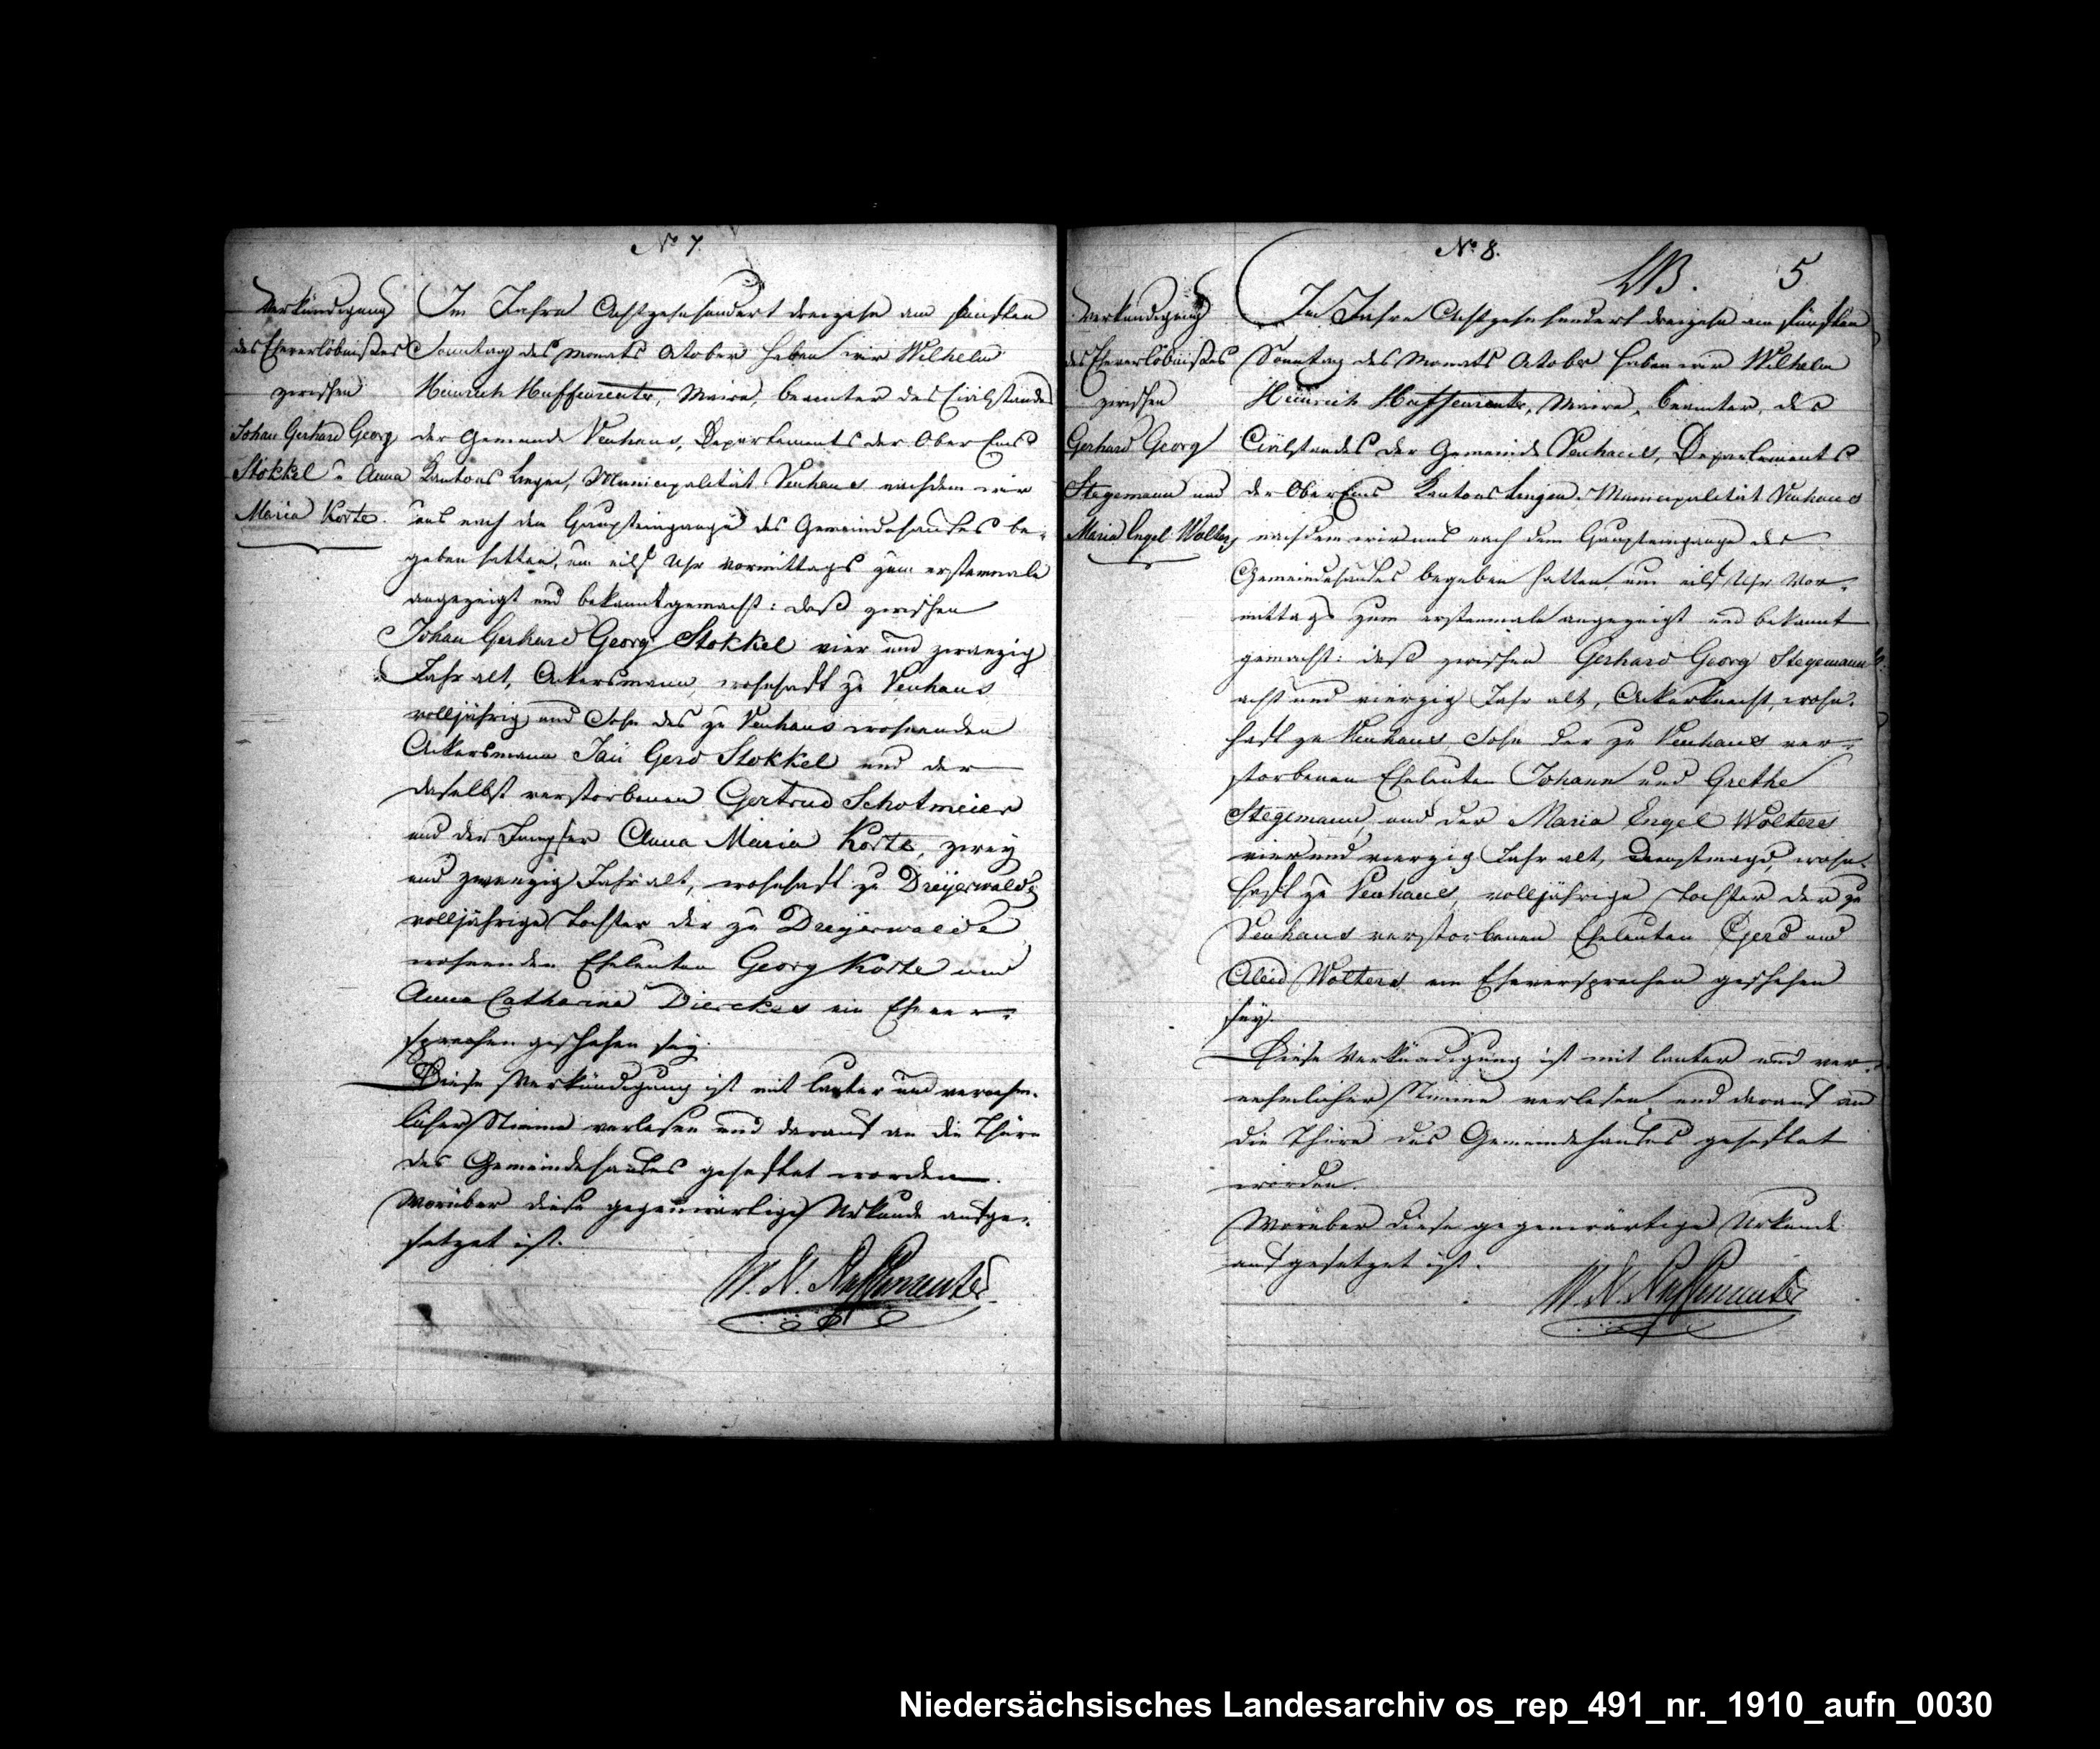 No 7.
Verkündigung
des Eheverlöbnißes
zwischen
Johan Gerhard Georg
Stokkel u Anna
Maria Korte.
Im Jahre Achtzehnhundert dreizehn am fünften
Sonntag des Monats October haben wir Wilhelm
Heinrich Maire, Beamter des Civilstandes
der Gemeinde Venhaus, Departements der Ober Ems
Kantons Lingen, Municipalität Venhaus nachdem wir
uns nach dem Haupteingange des Gemeindehauses be-
geben hatten, um eilf Uhr vormittags zum erstenmale
angezeigt und bekannt gemacht: daß zwischen
Johan Gerhard Georg Stokkel vier und zwanzig
Jahr alt, Ackersmann, wohnhaft zu Venhaus
volljährig und Sohn des zu Venhaus wohnenden
Ackersmann Jan Gerd Stokkel und der
daselbst verstorbenen Gertrud Schotmeier
und der Jungfer Anna Maria Korte, zwey
und zwanzig Jahr alt, wohnhaft zu Dreyerwalde
volljährige Tochter der zu Dreyerwalde
wohnenden Eheleuten Georg Korte und
Anna Catharina Dierckes ein Ehever-
sprechen geschehen sey.
Diese Verkündigung ist mit lauter und vernehm-
licher Stimme verlesen und darauf an die Thüre
des Gemeindehauses geheftet worden.
Worüber diese gegenwärtige Urkunde aufge-
setzet ist.
No 8.
5
Verkündigung
des Eheverlöbnißes
zwischen
Gerhard Georg
Stegemann und
Maria Engel Wolters
Im Jahre Achtzehnhundert dreizehn am fünften
Sonntag des Monats October haben wir Wilhelm
Heinrich Maire, Beamter, des
Civilstandes der Gemeinde Venhaus, Departements
der Ober Ems Kantons Lingen. Municipalität Venhaus
nachdem wir uns nach dem Haupteingange des
Gemeindehauses begeben hatten um eilf Uhr vor-
mittags zum erstenmale angezeigt und bekannt
gemacht: daß zwischen Gerhard Georg Stegemann
acht und vierzig Jahr alt, Ackerknecht, wohn-
haft zu Venhaus, Sohn der zu Venhaus ver-
storbenen Eheleuten Johann und Grethe
Stegemann, und der Maria Engel Wolters
vier und vierzig Jahr alt, Dienstmagd, wohn-
haft zu Venhaus, volljährige Tochter der zu
Venhaus verstorbenen Eheleuten Gerd und
Aleid Wolters ein Eheversprechen geschehen
sey.
Diese Verkündigung ist mit lauter und ver-
nehmlicher Stimme verlesen und darauf an
die Thüre des Gemeindehauses geheftet
worden.
Worüber diese gegenwärtige Urkunde
aufgesetzet ist.
Niedersächsisches Landesarchiv os_rep_491_nr._1910_aufn_0030